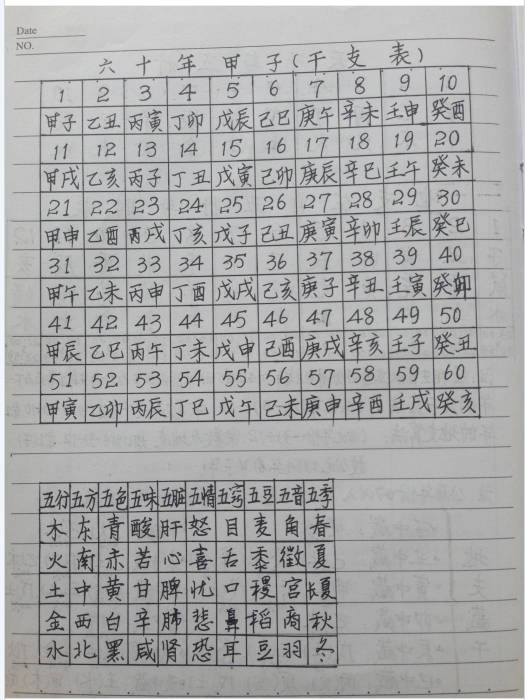 Date
NO.
六十年甲子(干支表)
1 2 3 4 5 6 7 8 9 10
甲子 乙丑 丙寅 丁卯 戊辰 己巳 庚午 辛未 壬申 癸酉
11 12 13 14 15 16 17 18 19 20
甲戌 乙亥 丙子 丁丑 戊寅 己卯 庚辰 辛巳 壬午 癸未
21 22 23 24 25 26 27 28 29 30
甲申 乙酉 丙戌 丁亥 戊子 己丑 庚寅 辛卯 壬辰 癸巳
31 32 33 34 35 36 37 38 39 40
甲午 乙未 丙申 丁酉 戊戌 己亥 庚子 辛丑 壬寅 癸卯
41 42 43 44 45 46 47 48 49 50
甲辰 乙巳 丙午 丁未 戊申 己酉 庚戌 辛亥 壬子 癸丑
51 52 53 54 55 56 57 58 59 60
甲寅 乙卯 丙辰 丁巳 戊午 己未 庚申 辛酉 壬戌 癸亥
五行 五方 五色 五味 五脏 五情 五窍 五豆 五音 五季
木 东 青 酸 肝 怒 目 麦 角 春
火 南 赤 苦 心 喜 舌 黍 徵 夏
土 中 黄 甘 脾 忧 口 稷 宫 长夏
金 西 白 辛 肺 悲 鼻 稻 商 秋
水 北 黑 咸 肾 恐 耳 豆 羽 冬